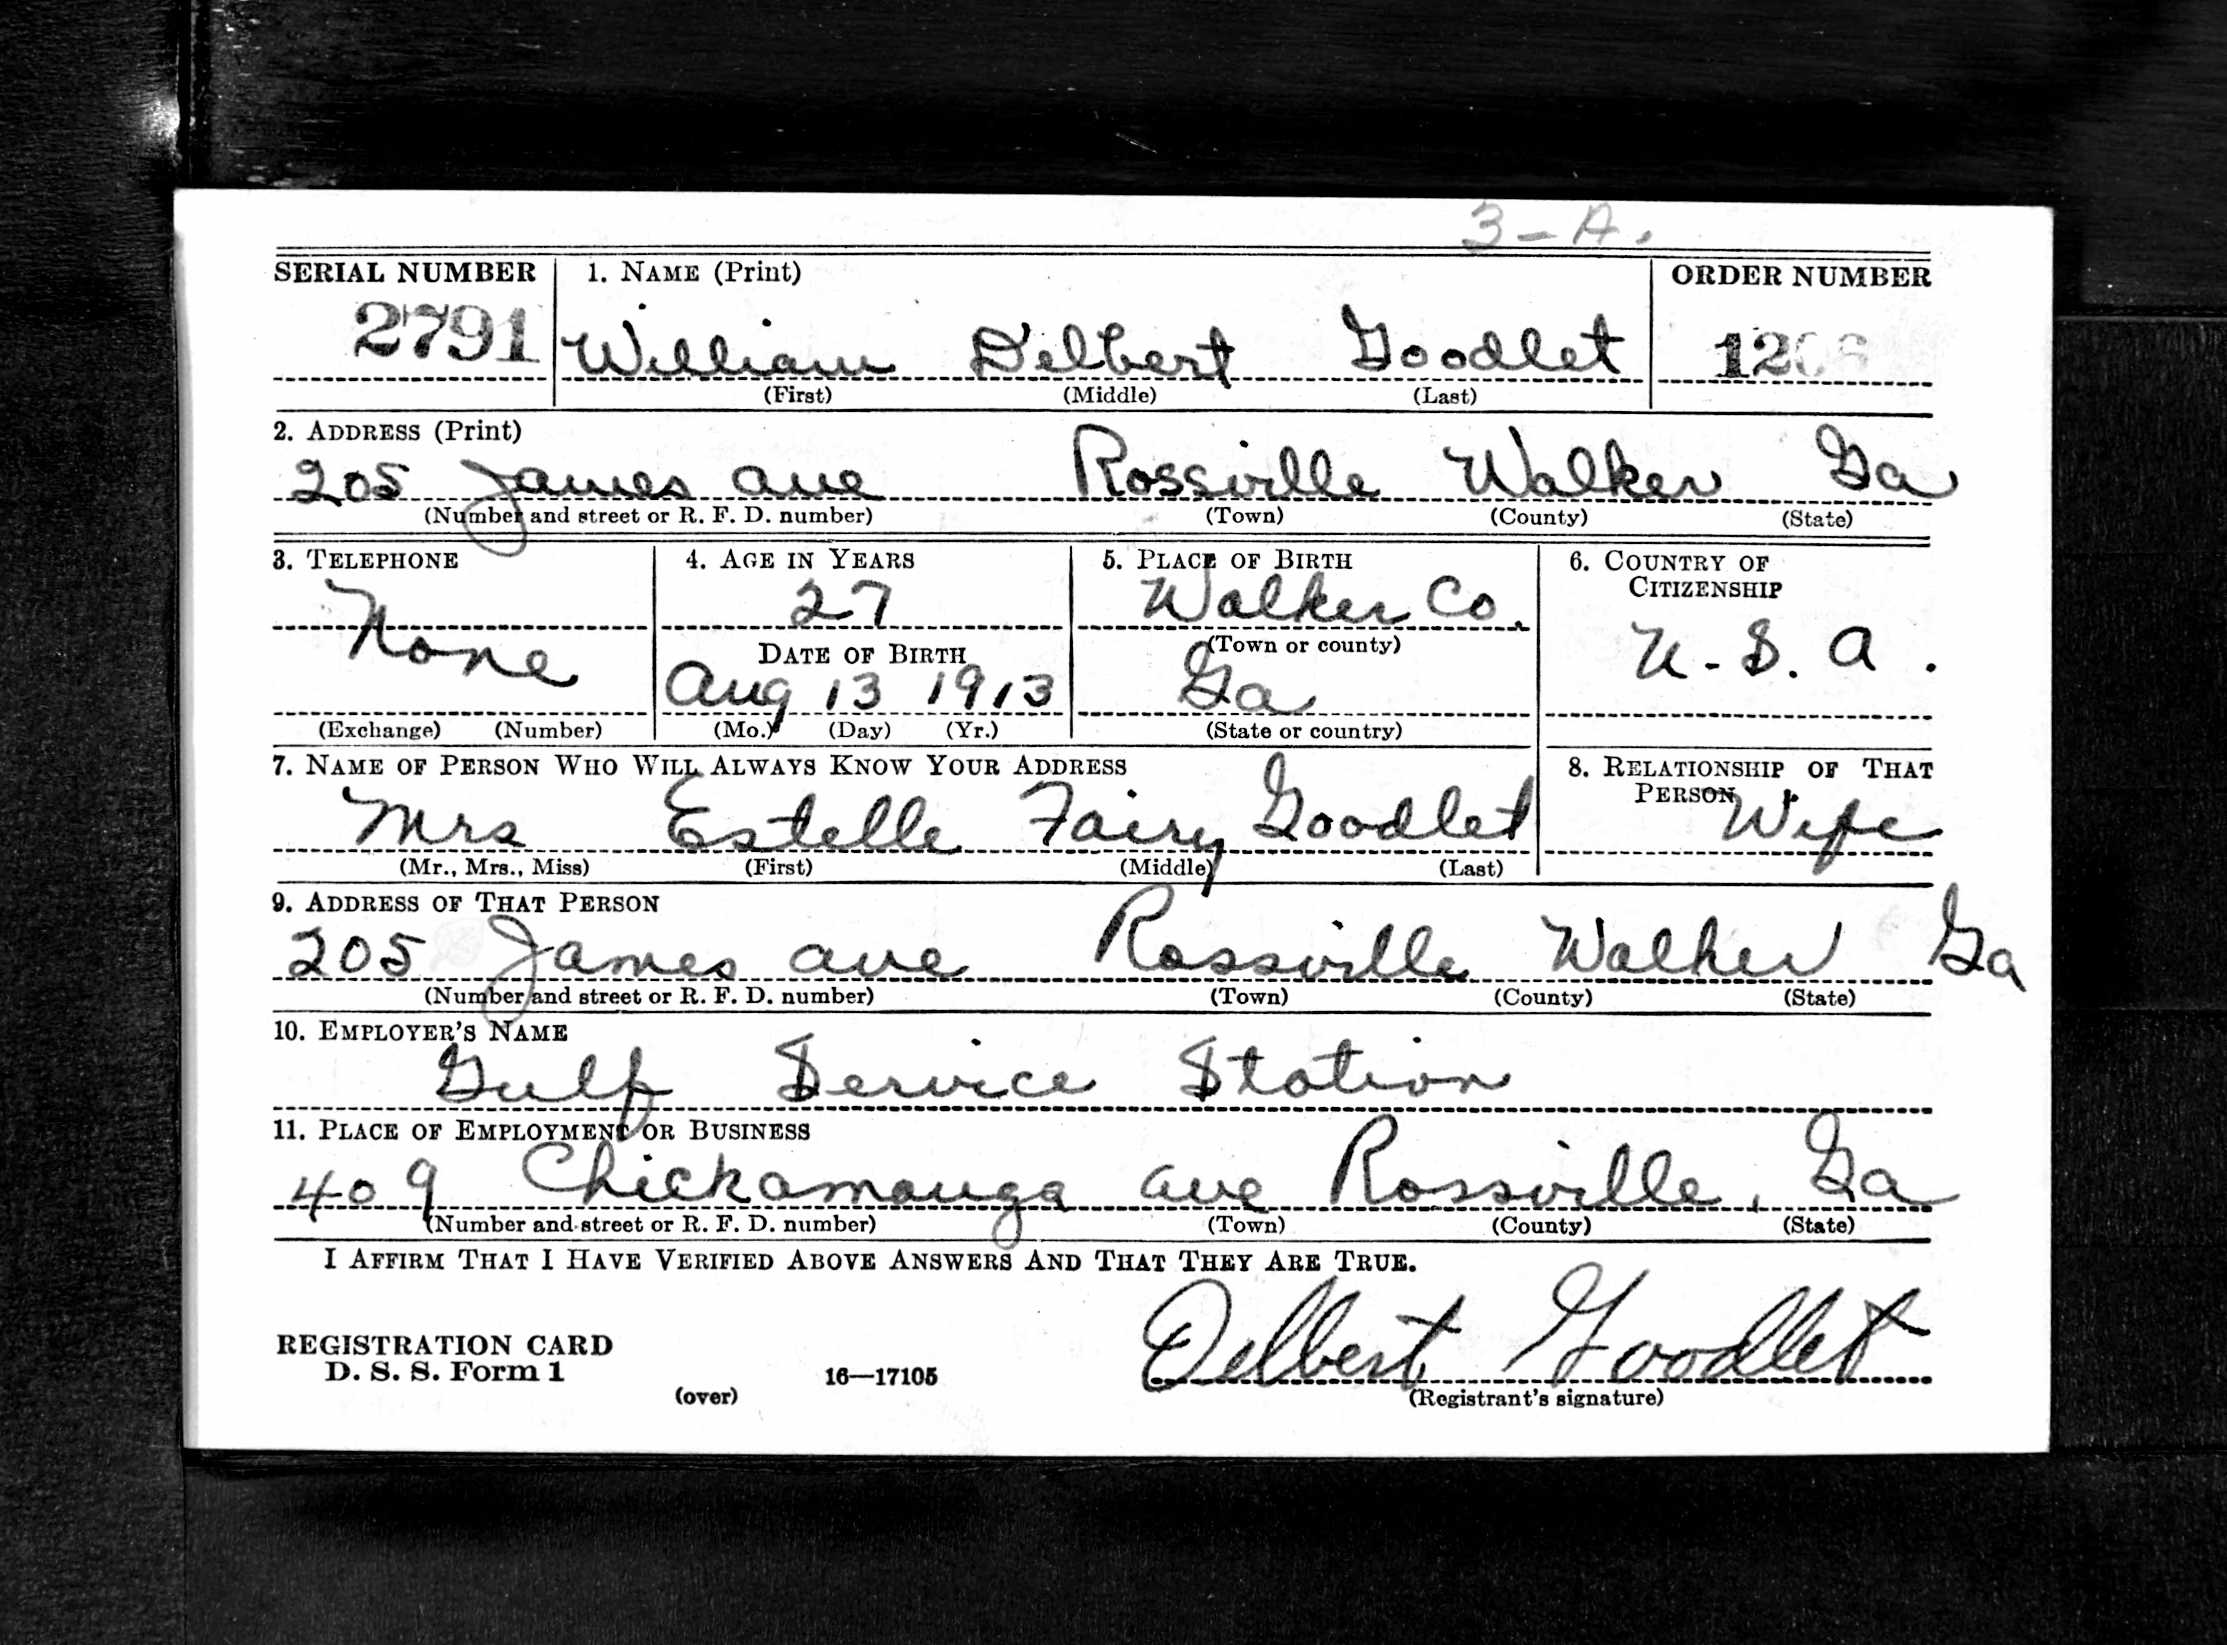 3-A.
SERIAL NUMBER 1. NAME (Print) ORDER NUMBER
2791 William Delbert Goodlet
(First) (Middle) (Last)
2. ADDRESS (Print)
205 James ave Rossville Walker Ga
(Number and street or R. F. D. number) (Town) (County) (State)
3. TELEPHONE 4. AGE IN YEARS 5. PLACE OF BIRTH 6. COUNTRY OF
CITIZENSHIP
27 Walker Co.
None DATE OF BIRTH (Town or county) U-S. A.
Aug 13 1913 Ga
(Exchange) (Number) (Mo.) (Day) (Yr.) (State or country)
7. NAME OF PERSON WHO WILL ALWAYS KNOW YOUR ADDRESS 8. RELATIONSHIP OF THAT
PERSON
Mrs Estelle Fairy Goodlet Wife
(Mr., Mrs., Miss) (First) (Middle) (Last)
9. ADDRESS OF THAT PERSON
205 James ave Rossville Walker Ga
(Number and street or R. F. D. number) (Town) (County) (State)
10. EMPLOYER'S NAME
Gulf Service Station
11. PLACE OF EMPLOYMENT OR BUSINESS
409 Chickamauga ave Rossville, Ga
(Number and street or R. F. D. number) (Town) (County) (State)
I AFFIRM THAT I HAVE VERIFIED ABOVE ANSWERS AND THAT THEY ARE TRUE.
Delbert Goodlet
REGISTRATION CARD
D. S. S. Form 1 16—17105
(over) (Registrant's signature)